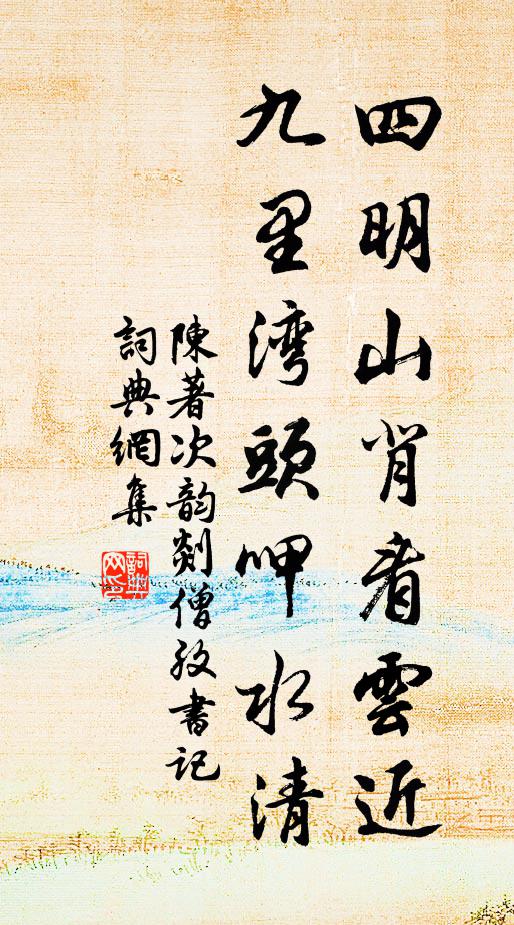 四明山背看雲近
九里湾頭呷水清
陳著次韵剡僧孜書記
詞典網集
詞典